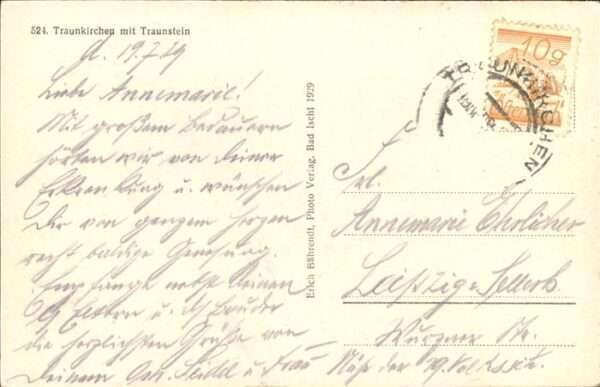 524. Traunkirchen mit Traunstein
19.7.29
Liebe Annemarie!
Mit großem Bedauern
hörten wir von Deiner
Erkrankung u. wünschen
Dir von ganzem Herzen
recht baldige Genesung.
Empfange nebst Deinen
Eltern u. Bruder
die herzlichsten Grüße von
Deinem u. Frau
Erich Bährendt, Photo Verlag, Bad Ischl 1929
10g
TRAUNKIRCHEN
Frl.
Annemarie Ehrlicher
Leipzig-Sellerh.
Wurzner Str.
Näh. der 19. Volkssch.